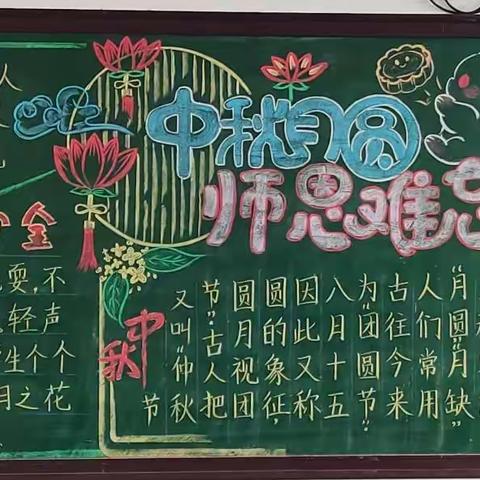 中秋月圆
师恩难忘
中秋
节
又叫“仲秋
节”.古人把
圆月视团
圆的象征,
因此又称
八月十五
为“团圆节”
古往今来
人们常用
“月圆”“月缺”
人
全
耍,不
轻声
生个个
月之花